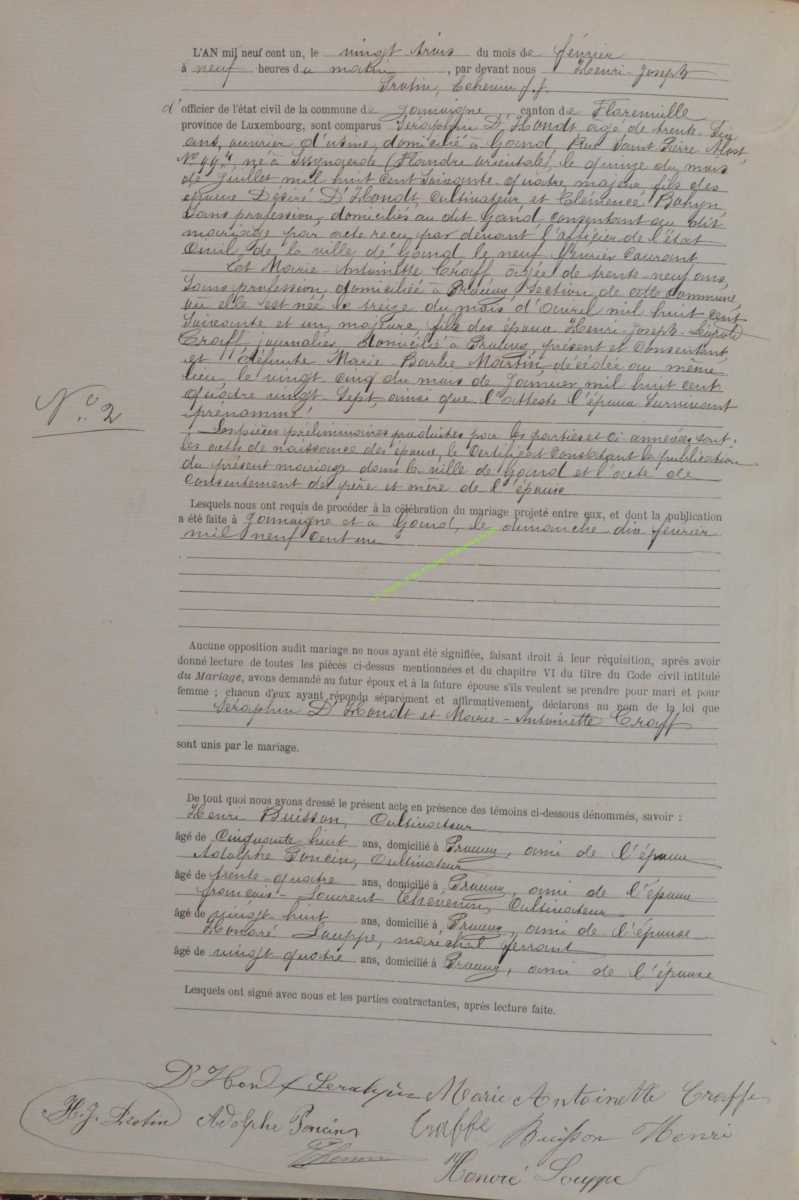 L'AN mil neuf cent un, le vingt trois du mois de février
à neuf heures du matin, par devant nous Henri-Joseph
Echevin f.f.
d'officier de l'état civil de la commune de Jamoigne, canton de Florenville
province de Luxembourg, sont comparus Séraphin D'Hondt âgé de trente six
ans, ouvrier d'usine, domicilié à Gand, Rue Saint Pierre Alost
né à (Flandre orientale) le quinze du mois
de juillet mil huit cent soixante quatre, majeur, fils des
époux Désiré D'Hondt, Cultivateur et Clémence
sans profession, domiciliés au dit Gand, consentant au dit
mariage par acte reçu par devant l'officier de l'état
Civil de la ville de Gand, le neuf février courant
Et Marie-Antoinette Craff, âgée de trente-neuf ans,
sans profession, domiciliée à section de cette commune,
où elle est née le treize du mois d'avril mil huit cent
soixante et un, majeure, fille des époux Henri-Joseph
Craff, journalier, domicilié à présent et consentant
et défunte Marie Barbe Martin, décédée au même
lieu, le vingt cinq du mois de janvier mil huit cent
quatre vingt sept, ainsi que l'atteste l'époux survivant
prénommé.
N° 2
Les pièces préliminaires produites par les parties et ci annexées sont:
les actes de naissance des époux, le certificat constatant la publication
du présent mariage dans la ville de Gand et l'acte de
consentement des père et mère de
Lesquels nous ont requis de procéder à la célébration du mariage projeté entre eux, et dont la publication
a été faite à Jamoigne et à Gand, le dimanche dix février
mil neuf cent un
Aucune opposition audit mariage ne nous ayant été signifiée, faisant droit à leur réquisition, après avoir
donné lecture de toutes les pièces ci-dessus mentionnées et du chapitre VI du titre du Code civil intitulé
du Mariage, avons demandé au futur époux et à la future épouse s'ils veulent se prendre pour mari et pour
femme ; chacun d'eux ayant répondu séparément et affirmativement, déclarons au nom de la loi que
Séraphin D'Hondt et Marie-Antoinette Craff
sont unis par le mariage.
De tout quoi nous avons dressé le présent acte en présence des témoins ci-dessous dénommés, savoir :
Henri Buisson, Cultivateur
âgé de cinquante huit ans, domicilié à ami de l'époux
Adolphe Poncin, Cultivateur
âgé de trente-quatre ans, domicilié à ami de l'époux
François-Laurent Thevenin, Cultivateur
âgé de vingt huit ans, domicilié à ami de l'épouse
Honoré Louppe, maréchal ferrant
âgé de vingt quatre ans, domicilié à ami de l'épouse
Lesquels ont signé avec nous et les parties contractantes, après lecture faite.
D'Hondt Séraphin Marie Antoinette Craffe
H.J. Adolphe Poncin Craffe Buisson Henri
Honoré Louppe